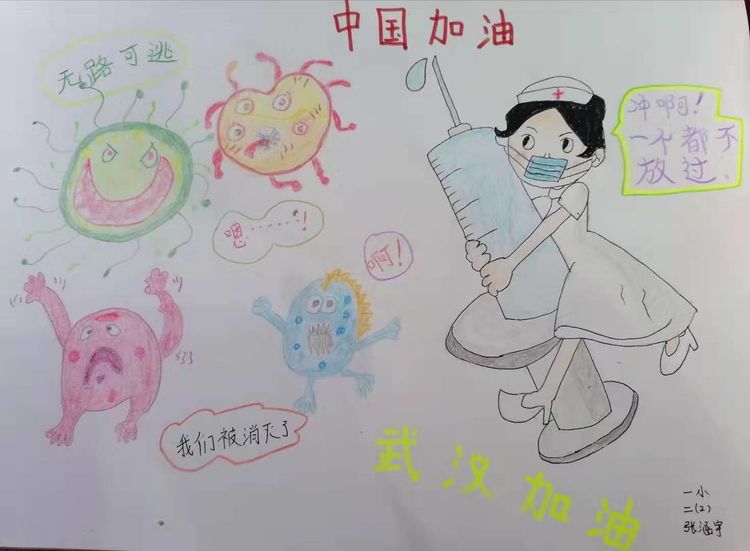 中国加油
无路可逃
冲啊!
一个都不
放过.
嗯……!
啊!
我们被消灭了
武汉加油
一小
二(2)
张涵宇